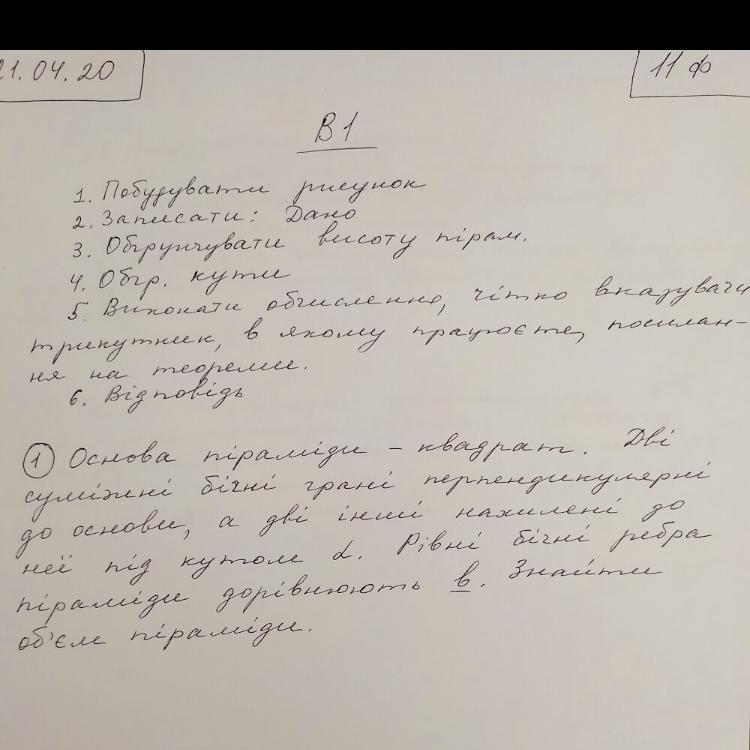 21.04.20
11 ф
В1
1. Побудувати рисунок
2. Записати: Дано
3. Обгрунтувати висоту пірам.
4. Обгр. кути
5. Виконати обчислення, чітко вказувати
трикутник, в якому працюєте, посилан-
ня на теореми.
6. Відповідь
1 Основа піраміди - квадрат. Дві
суміжні бічні грані перпендикулярні
до основи, а дві інші нахилені до
неї під кутом α. Рівні бічні ребра
піраміди дорівнюють b. Знайти
об'єм піраміди.